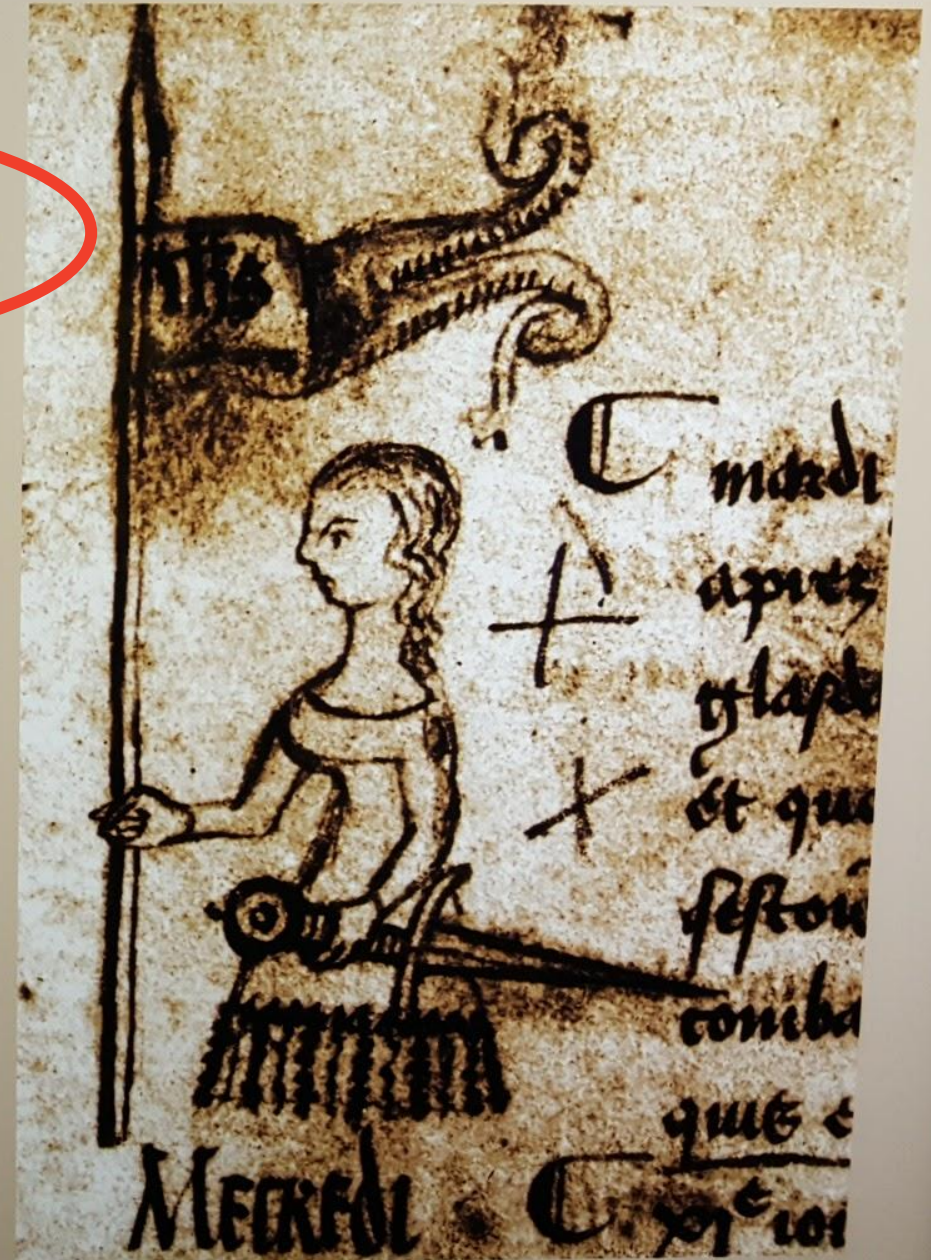 ihs
C mardi
apres
glasd
et que
sestoi
comba
quis e
MECREDI C xjᵉ ioi